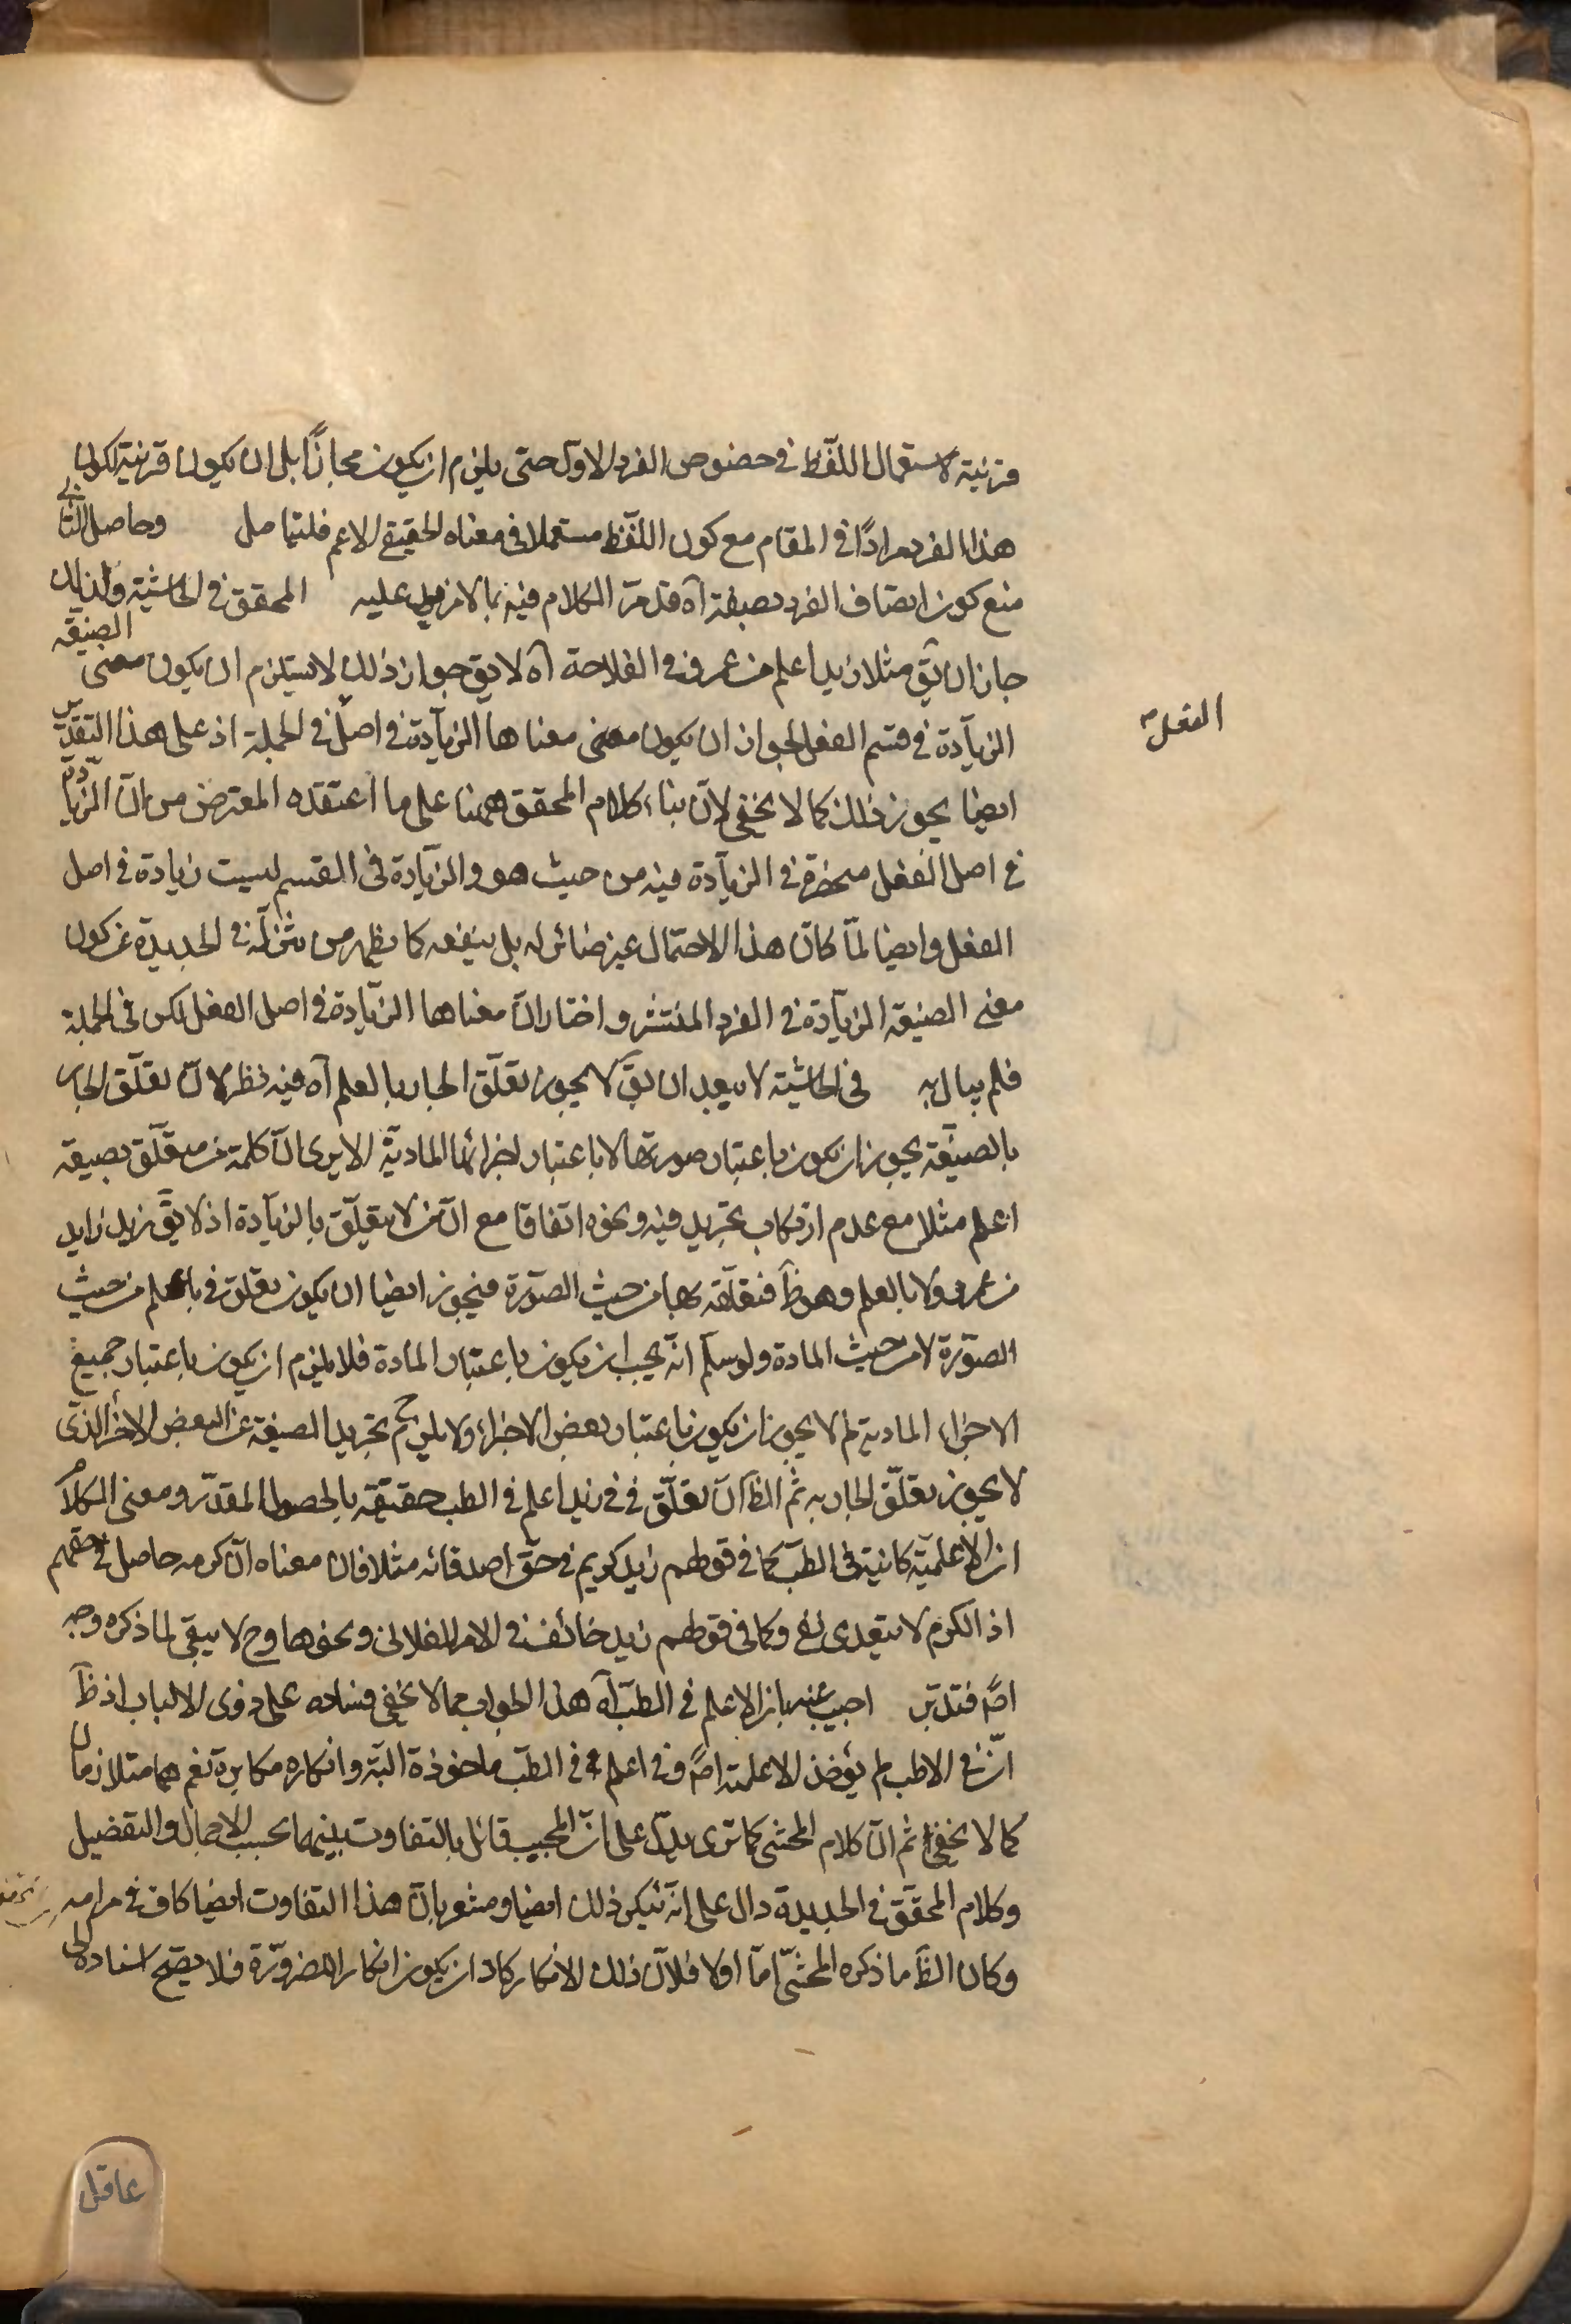 قرينة لاستعمال اللّفظ في خصوص الفرد الاوّل حتى يلزم ان يكون مجازًا بل ان يكون قرينة لكون
هذا الفرد مرادًا في المقام مع كون اللّفظ مستعملا في معناه الحقيقي الاعم فليتامل وحاصل الثاني
منع كون اتصاف الفرد بصيغة آه قد مرّ الكلام فيه بما لامزيد عليه المحقق في الحاشية ولذلك
جاز ان يقّ مثلا زيد اعلم من عمرو في الفلاحة آه لا يقّ جواز ذلك لا يستلزم ان يكون معنى الصيغة
الزيّادة في قسم الفعل لجواز ان يكون معنى معناها الزيّادة في اصل في الجملة اذ على هذا التقدير
الفعل
ايضا يجوز ذلك كما لا يخفى لانّ بناء كلام المحقق ههنا على ما اعتقده المعترض من انّ الزيّادة
في اصل الفعل منحصرة في الزيّادة فيه من حيث هو والزيّادة في القسم ليست زيادة في اصل
الفعل وايضا لمّا كان هذا الاحتمال غير ضائر له بل ينفعه كما يظهر من تنزّله في الجديدة عن كون
معنى الصيغة الزيّادة في الفرد المنتشر واختار انّ معناها الزيّادة في اصل الفعل لكن في الجملة
فلم يبال به في الحاشية لا يبعد ان يقّ لا يجوز تعلّق الجار بالعلم آه فيه نظر لانّ تعلّق الجار
بالصيغة يجوز ان يكون باعتبار صورتها لا باعتبار اجزائها الماديّة الا يرى انّ كلمة من متعلّق بصيغة
اعلم مثلا مع عدم ارتكاب تجريد فيه ونحوه اتفاقا مع انّ من لا يتعلّق بالزيّادة اذ لا يقّ زيد زايد
من عمرو ولا بالعلم وهو ظّ فتعلّقه بها من حيث الصّورة فيجوز ايضا ان يكون تعلّق في باعلم من حيث
الصّورة لا من حيث المادة ولو سلّم انّه يجب ان يكون باعتبار المادة فلا يلزم ان يكون باعتبار جميع
الاجزاء المادية لم لا يجوز ان يكون باعتبار بعض الاجزاء ولا يلزم ح تجريد الصيغة عن البعض الاخر الذي
لا يجوز تعلّق الجار به ثم الظّ انّ تعلّق في في زيد اعلم في الطب حقيقة بالحصول المقدّر ومعنى الكلام
ان الاعلميّة كائنة في الطبّ كما في قولهم زيد كريم في حقّ اصدقائه مثلا فان معناه انّ كرمه حاصل في حقهم
اذ الكرم لا يتعدى بفي وكما في قولهم زيد خائف في الامر الفلاني ونحوها وح لا يبقى لما ذكره وجه
اصّ فتدبّر اجيب عنه بان الاعلم في الطبّ آه هذا الجواب مما لا يخفى فساده على ذوى الالباب اذ ظّ
انّ في الاطب لم يؤخذ الاعلمية اصّ وفي اعلم في الطبّ ماخوذة البتّة وانكاره مكابرة نعم هما متلازمان
كما لا يخفى ثم انّ كلام المحشي كما ترى يدلّ على انّ المجيب قائل بالتفاوت بينهما بحسب الاجمال والتفصيل
وكلام المحقّق في الجديدة دال على انّه ينكر ذلك ايضا ومشعر بانّ هذا التفاوت ايضا كاف في مرامه
وكان الظّ ما ذكره المحشّي امّا اولا فلانّ ذلك الانكار كاد ان يكون انكار الضروريّة فلا يصّح اسناده الى
عاقل